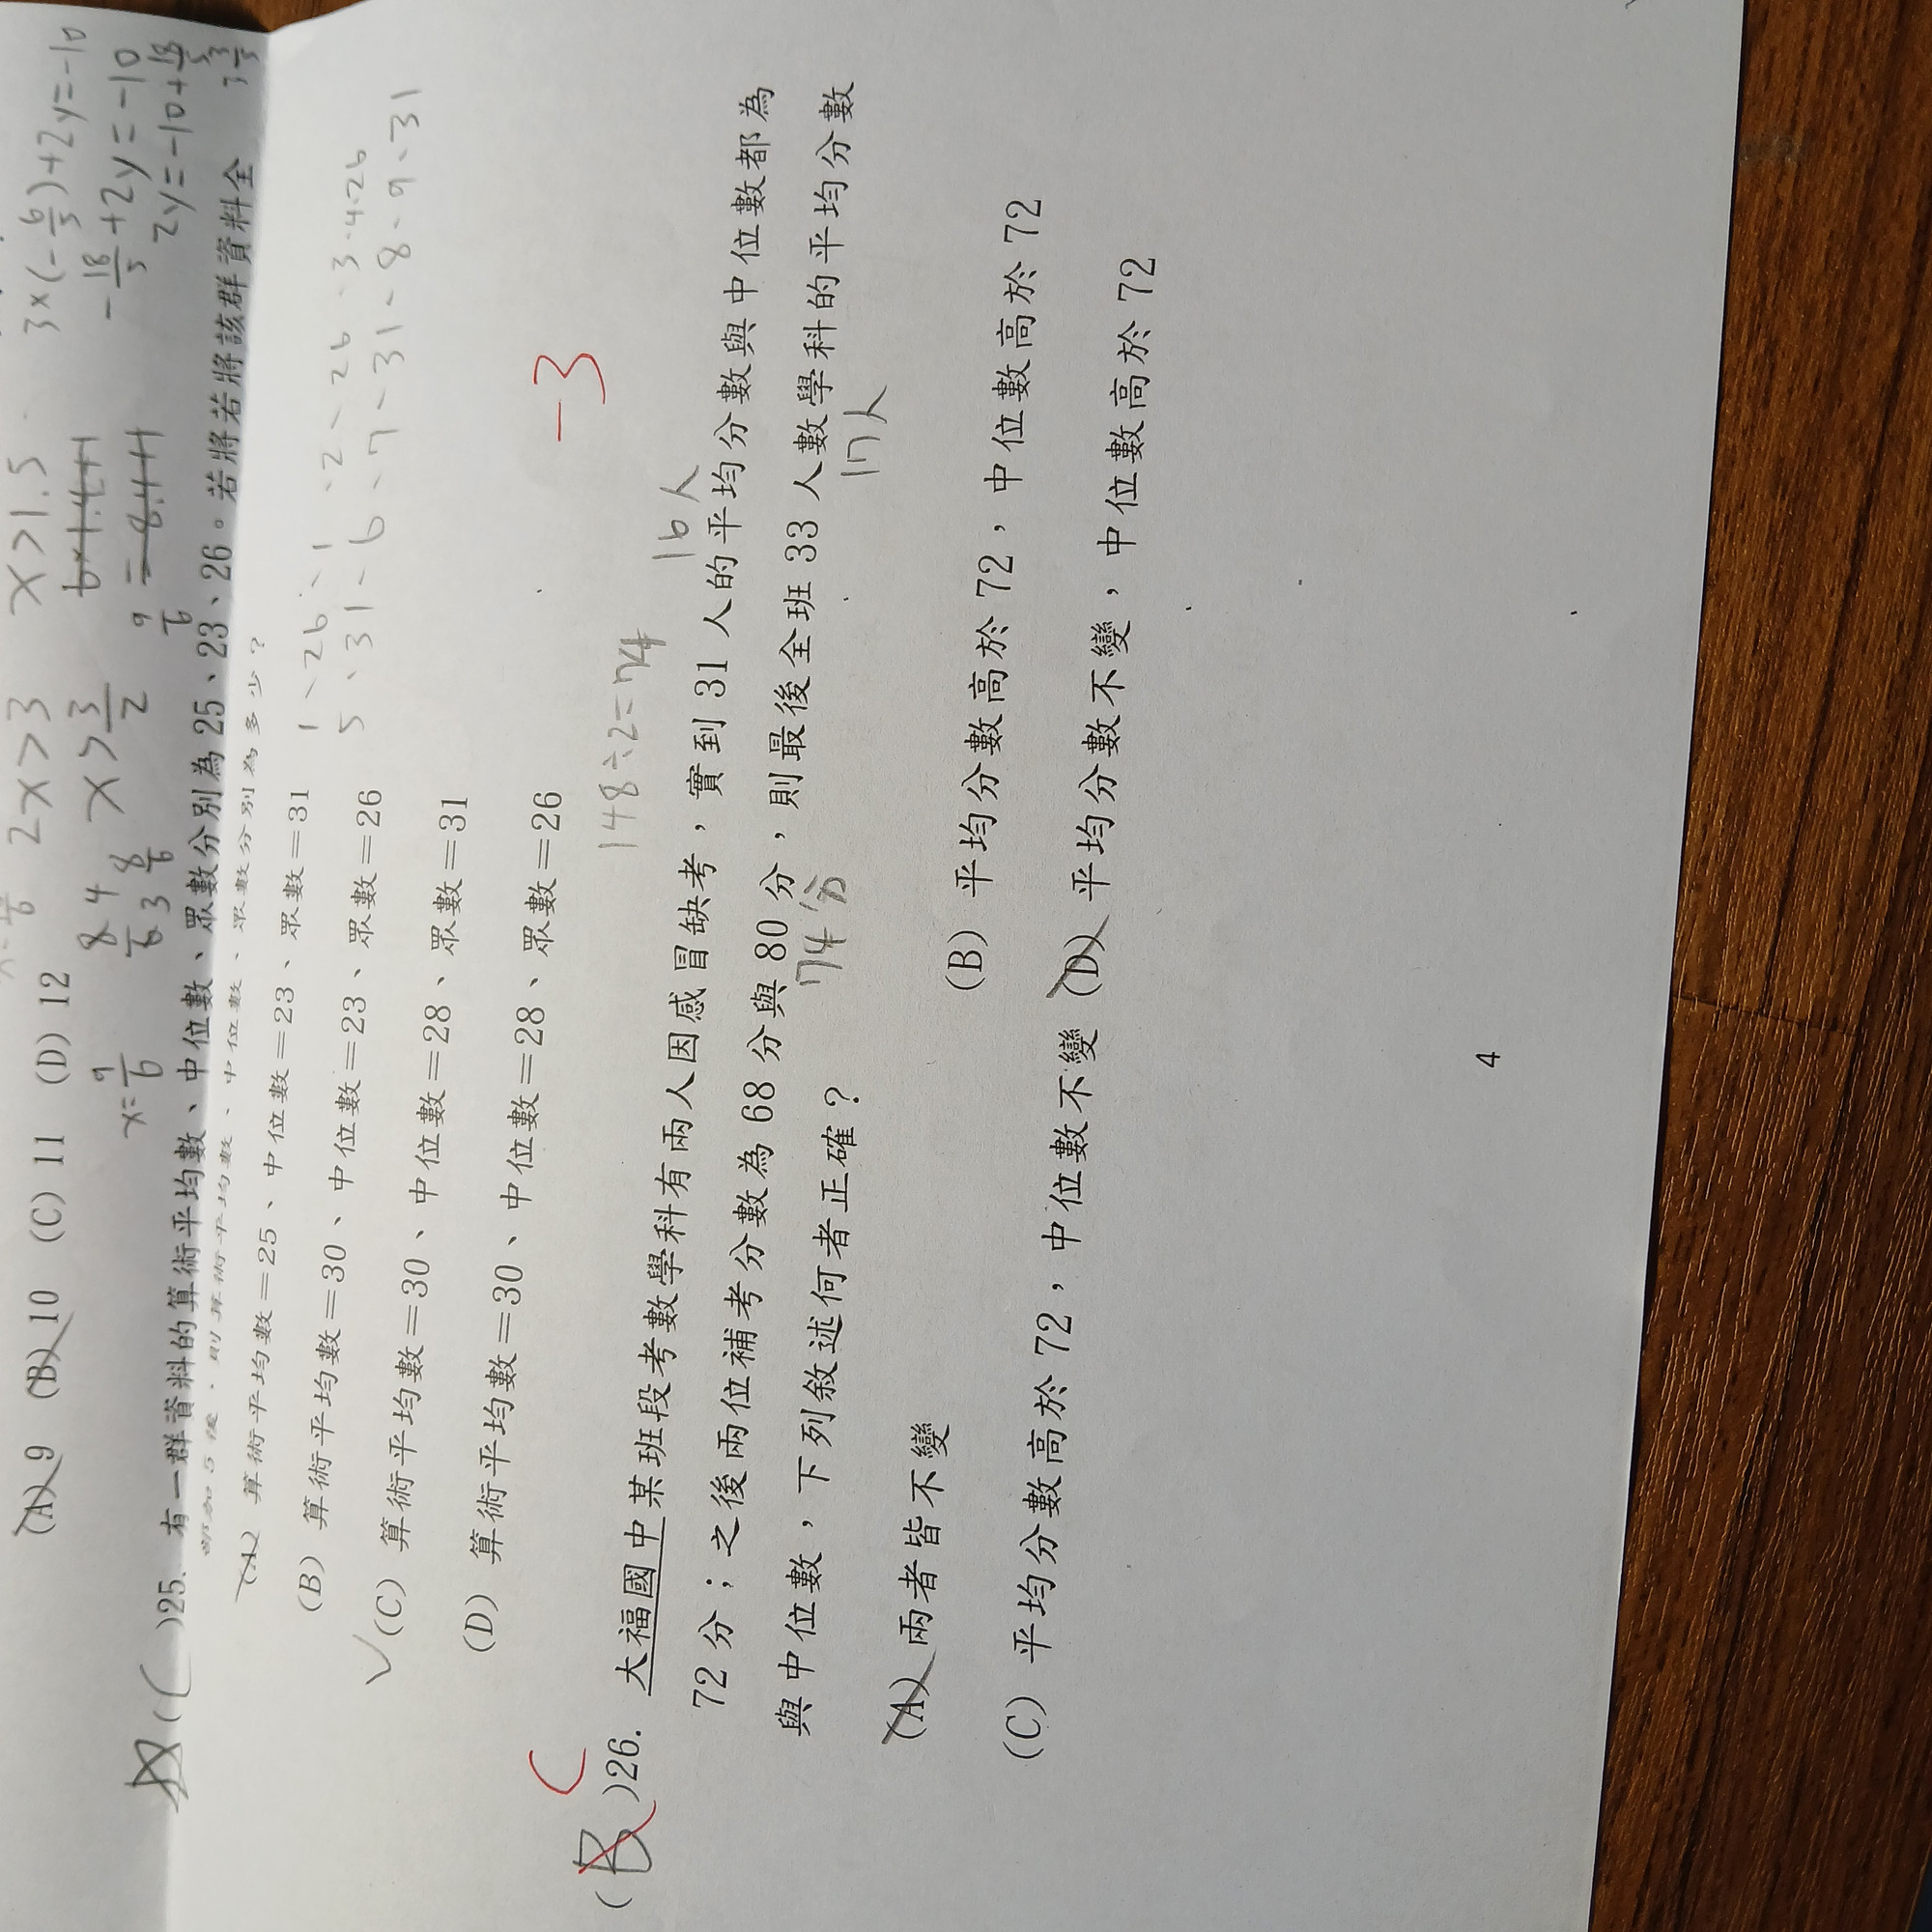 (A) 9 (B) 10 (C) 11 (D) 12
2x>3 x>1.5
x>3/2
x=9/6
8/6 4/3 8/6 9/6
3×(-6/5)+2y=-10
-18/5+2y=-10
2y=-10+18/5
(C)25. 有一群資料的算術平均數、中位數、眾數分別為 25、23、26。若將若將該群資料全
部加 5 後,則算術平均數、中位數、眾數分別為多少?
(A) 算術平均數=25、中位數=23、眾數=31
(B) 算術平均數=30、中位數=23、眾數=26
(C) 算術平均數=30、中位數=28、眾數=31
(D) 算術平均數=30、中位數=28、眾數=26
1、26、1、2、26、3、4、26
5、31、6、7、31、8、9、31
-3
C
148÷2=74
16人
(B)26. 大福國中某班段考數學科有兩人因感冒缺考,實到 31 人的平均分數與中位數都為
72 分;之後兩位補考分數為 68 分與 80 分,則最後全班 33 人數學科的平均分數
74分
17人
與中位數,下列敘述何者正確?
(A) 兩者皆不變
(B) 平均分數高於 72,中位數高於 72
(C) 平均分數高於 72,中位數不變
(D) 平均分數不變,中位數高於 72
4